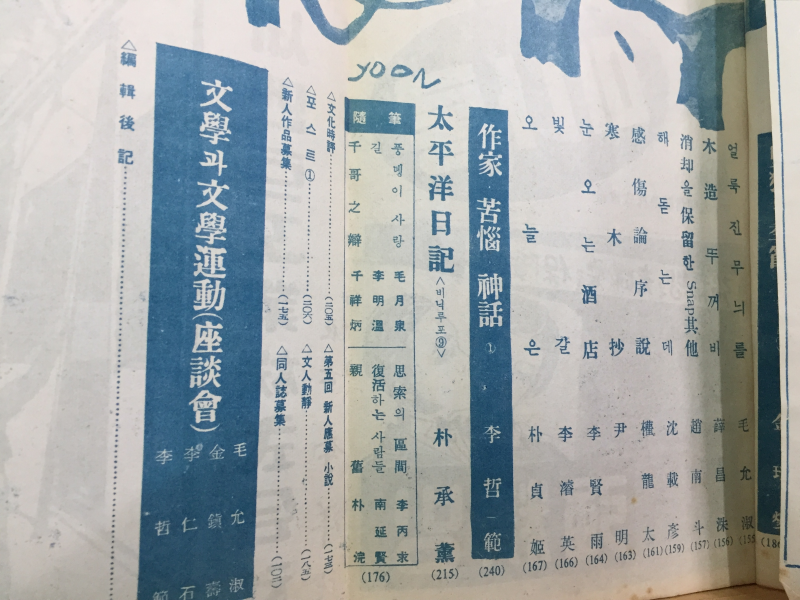 얼룩진 무늬를 毛允淑 (155)
木造 뚜꺼비 薛昌洙 (156)
消却을 保留한 Snap其他 趙南斗 (157)
해 돋는데 沈載彥 (159)
感傷論序說 權龍太 (161)
寒木抄 尹明 (163)
눈 오는 酒店 李賢雨 (164)
빛갈 李濬英 (166)
오늘은 朴貞姬 (167)
作家·苦惱·神話 ① 李哲範 (240)
太平洋日記 <비닉루포⑨> 朴承薰 (215)
YOON
隨筆
풍뎅이 사랑 毛月泉 思索의 區間 李丙求
길 李明溫 復活하는 사람들 南延賢
千哥之辯 千祥炳 親舊 朴浣
(176)
△文化時評 (二〇五) △第五回 新人應募 小說 (一七三)
△포스트① (二〇六) △文人動靜 (一八五)
△新人作品募集 (一七五) △同人誌募集 (一〇二)
文學과 文學運動(座談會) 毛允淑
金鎭壽
李仁石
李哲範
△編輯後記